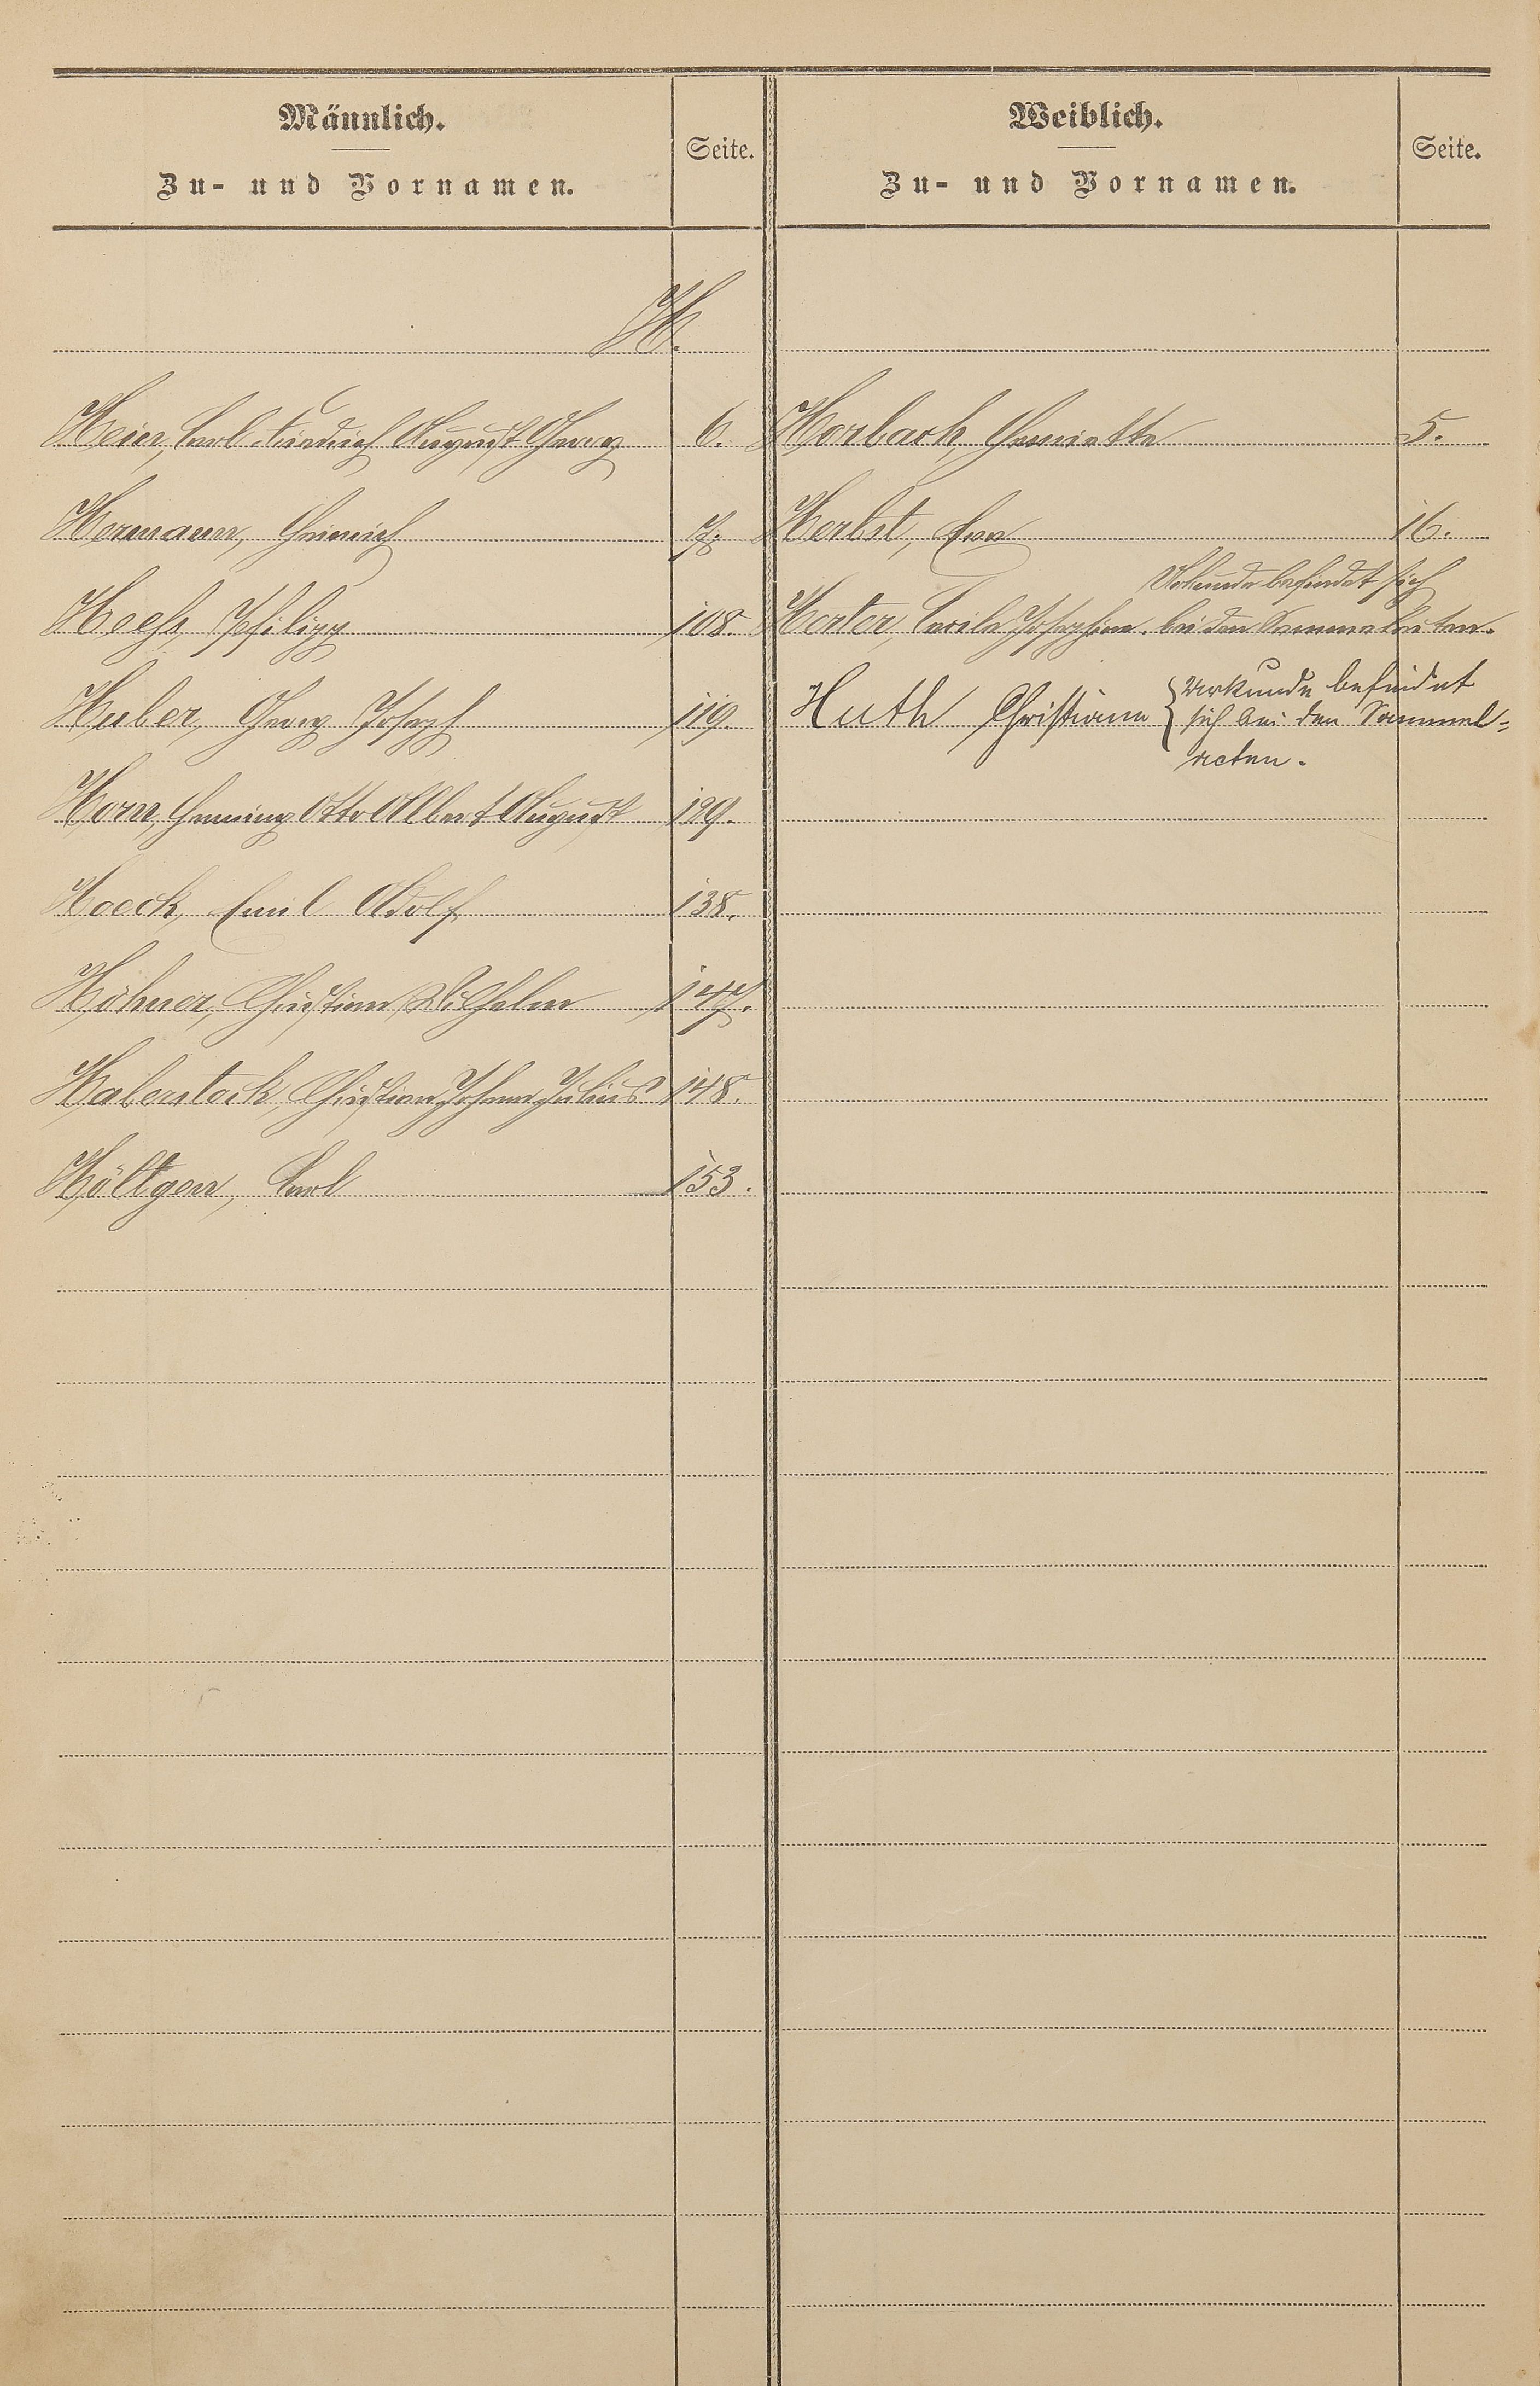 Männlich.
Zu- und Vornamen.
Seite.
Weiblich.
Zu- und Vornamen.
Seite.
H.
Heier, Carl Friedrich August Georg 6.
Hermann, Heinrich 7.
Heeß, Philipp 108.
Huber, Georg Joseph 119.
Horn, Henning Otto Albert August 129.
Hoeck, Emil Adolf 138.
Höhner, Christian Wilhelm 147.
Haberstock, Christian Johann Julius 148.
Höltgen, Carl 153.
Horbach, Henriette 5.
Herbst, Eva 16.
Urkunde befindet sich
Herter, Cecile Josephine. bei den Sammelacten.
Huth Christiane { Urkunde befindet
sich bei den Sammel-
acten.